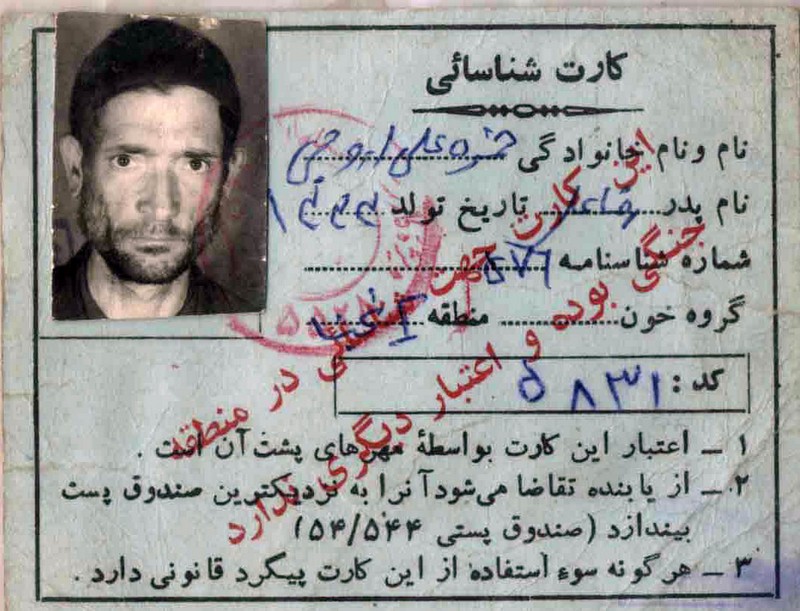 کارت شناسائی
نام و نام خانوادگی
نام پدر رضاعلی تاریخ تولد ۱۳۴۲
شماره شناسنامه ۵۷۶
گروه خون منطقه
کد : ۵۸۳۱
۱ ــ اعتبار این کارت بواسطهٔ مهرهای پشت آن است .
۲ ــ از یابنده تقاضا می‌شود آنرا به نزدیکترین صندوق پست
بیندازد (صندوق پستی ۵۴/۵۴۴)
۳ ــ هرگونه سوء استفاده از این کارت پیگرد قانونی دارد .
این کارت جهت در منطقه
جنگی بوده و اعتبار دیگری ندارد